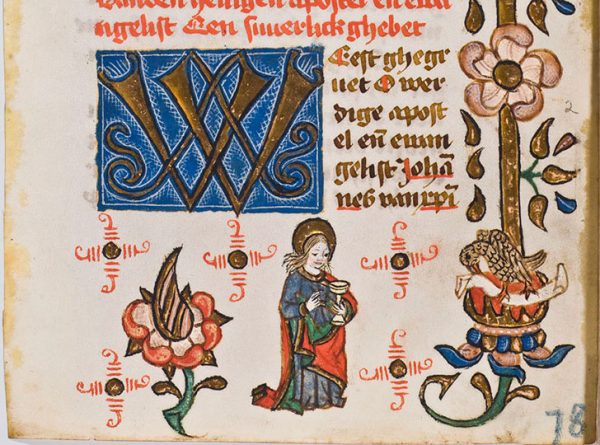 vanden heiligen apostel eñ ewa
ngelist Een suuerlick ghebet
Weest ghegr
uet O wer
dige apost
el eñ ewan
gelist Johā
nes van xp̄i
2
78